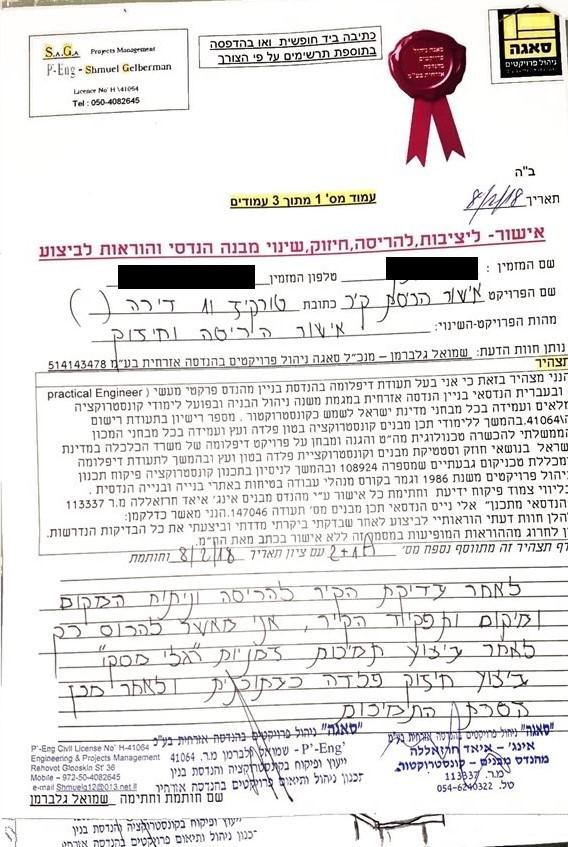 S.A.G.A Projects Management
P'-Eng - Shmuel Gelberman
Licence No' H \41064
Tel : 050-4082645
כתיבה ביד חופשית ואו בהדפסה
בתוספת תרשימים על פי הצורך
סאגה ניהול
פרויקטים
בהנדסה
אזרחית בע"מ
סאגה
ניהול פרויקטים
ב"ה
תאריך 8/2/18
עמוד מס' 1 מתוך 3 עמודים
אישור- ליציבות,להריסה,חיזוק,שינוי מבנה הנדסי והוראות לביצוע
שם המזמין : טלפון המזמין
שם הפרויקט אישור הריסת קיר כתובת
מהות הפרויקט-השינוי: אישור הריסה וחיזוק
נותן חוות הדעת: שמואל גלברמן – מנכ"ל סאגה ניהול פרויקטים בהנדסה אזרחית בע"מ 514143478
תצהיר
הנני מצהיר בזאת כי אני בעל תעודת דיפלומה בהנדסת בניין מהנדס פרקטי מעשי ( practical Engineer
ובעברית הנדסאי בניין הנדסה אזרחית במגמת משנה ניהול הבניה ובפועל לימודי קונסטרוקציה
מלאים ועמידה בכל מבחני מדינת ישראל לשמש כקונסטרוקטור . מספר רישיון בתעודת רישום
41064.בהמשך ללימודי תכן מבנים קונסטרוקציה בטון פלדה ועץ ועמידה בכל מבחני המכון
הממשלתי להכשרה טכנולוגית מה"ט והגנה ומבחן על פרויקט דיפלומה של משרד הכלכלה במדינת
ישראל בנושאי חוזק וסטטיקת מבנים וקונסטרוקציית פלדה בטון ועץ ובהמשך לתעודת דיפלומה
ממכללת טכניקום גבעתיים שמספרה 108924 ובהמשך לניסיון בתכנון קונסטרוקציה פיקוח תכנון
ניהול פרויקטים משנת 1986 וגמר בקורס מנהלי עבודה בטיחות באתרי בנייה ובנייה הנדסית .
בליווי צמוד פיקוח ידיעת וחתימת כל אישור ע"י מהנדס מבנים אינג' איאד חרזאללה מ.ר 113337
הנדסאי מתכנן" אלי נייס הנדסאי תכן מבנים מס' תעודה 147046. הנני מאשר כדלקמן:
להלן חוות דעתי הוראותיי לביצוע לאחר שבדקתי ביקרתי מדדתי וביצעתי את כל הבדיקות הנדרשות.
אין לחרוג מההוראות המופיעות במסמך זה ללא אישור בכתב מאת הח"מ.
דף תצהיר זה מתווסף נספח מס' 2+1A עם ציון תאריך 8/2/18 וחותמת
לאחר בדיקת הקיר להריסה וניתוח המקום
ומיקום ותפקיד הקיר, אני מאשר להרוס רק
לאחר ביצוע תמיכות זמניות
ביצוע חיזוק פלדה כבתוכנית ולאחר מכן
הסרת התמיכות
P'-Eng Civil License No' H-41064
Engineering & Projects Management
Rehovot Glooskin St' 36
Mobile – 972-50-4082645
e-mail Shmuelg12@013.net.il
"סאגה" ניהול פרויקטים בהנדסה אזרחית בע"מ
P'-Eng' - שמואל גלברמן מ.ר. 41064
ייעוץ ופיקוח בקונסטרוקציה והנדסת בנין
תכנון ניהול ותיאום פרויקטים בהנדסה אזרחית
"סאגה" ניהול פרויקטים בהנדסה אזרחית בע"מ
אינג' - איאד חרזאללה
מהנדס מבנים - קונסטרוקטור
מ.ר. 113337
טל. 054-6240322
שם חותמת וחתימה: שמואל גלברמן
ייעוץ ופיקוח בקונסטרוקציה והנדסת בנין
תכנון ניהול ותיאום פרויקטים בהנדסה אזרחית